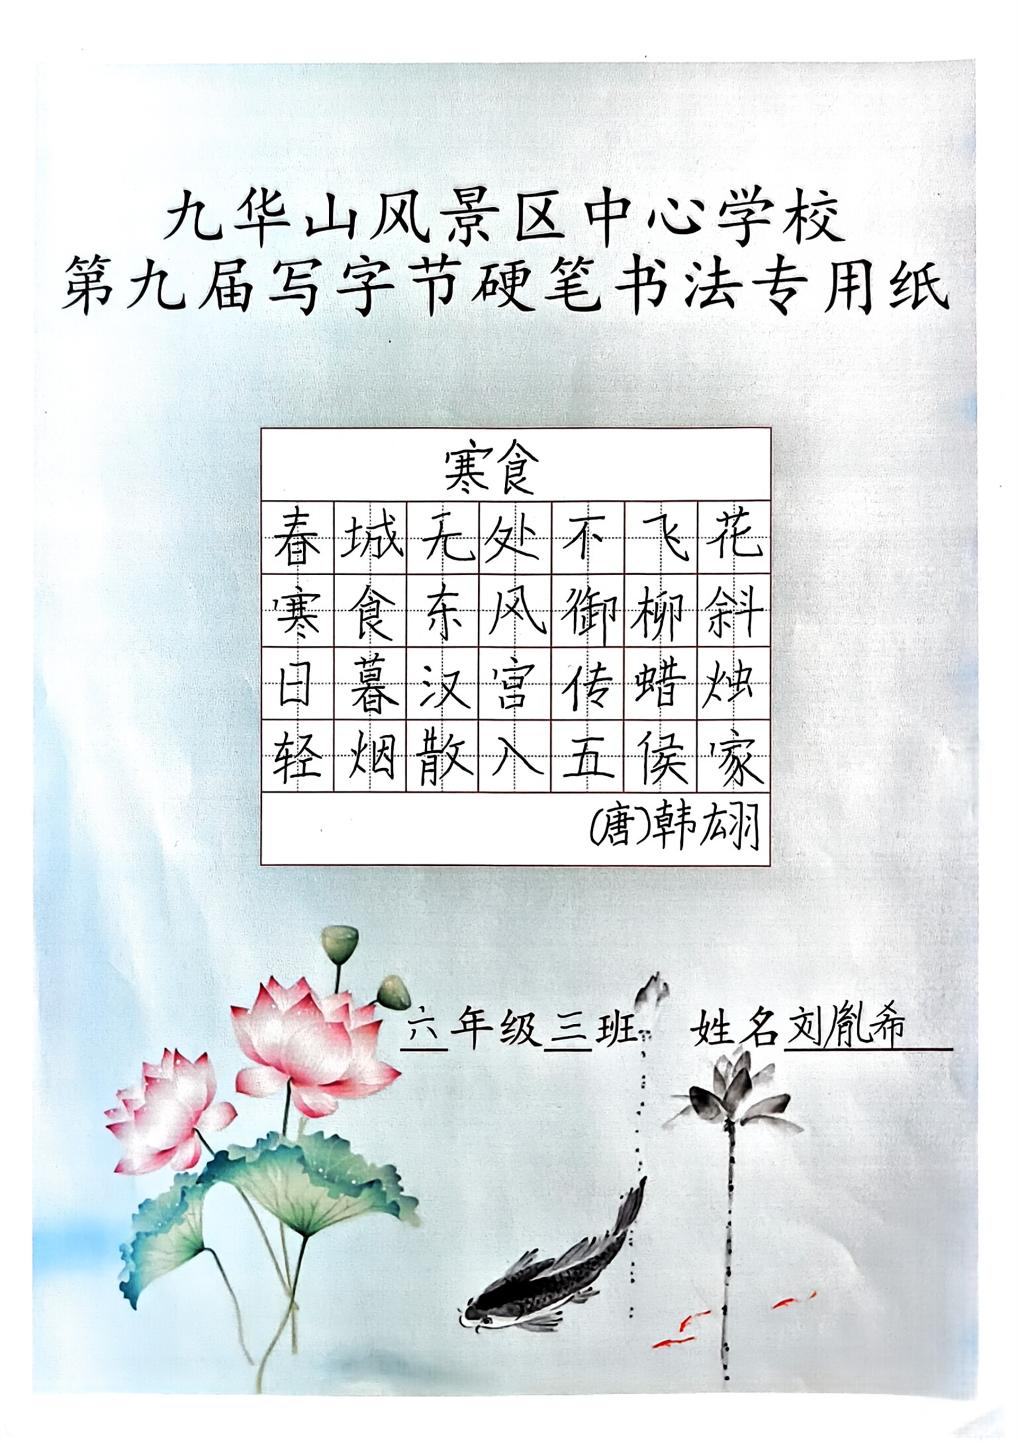 九华山风景区中心学校
第九届写字节硬笔书法专用纸
寒食
春城无处不飞花
寒食东风御柳斜
日暮汉宫传蜡烛
轻烟散入五侯家
(唐)韩翃
六年级三班 姓名刘胤希